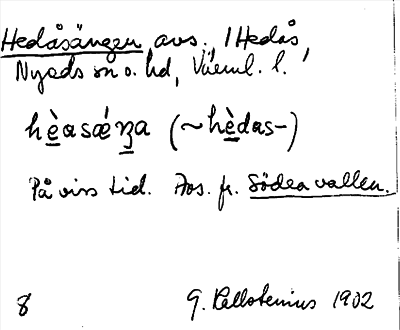 Hedåsängen, avs., i Hedås,
Nyeds sn o. hd, Värml. l.
hèasǽŋa (~hèdas-)
På viss tid. Avs. fr. Södra vallen.
8 G. Kallstenius 1902